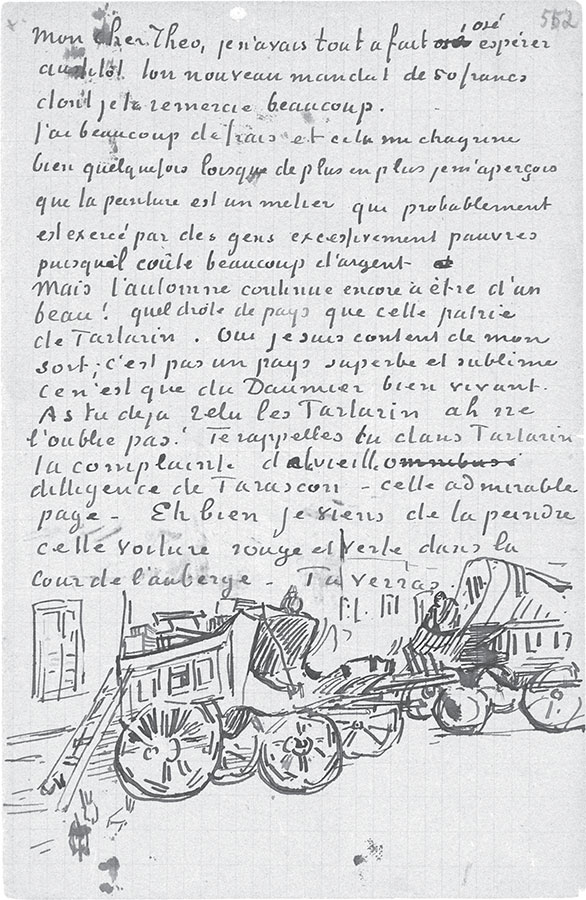 552
Mon cher Theo, je n'avais tout a fait osé espérer
aussitot ton nouveau mandat de 50 francs
dont je te remercie beaucoup.
J'ai beaucoup de frais et cela me chagrine
bien quelquefois lorsque de plus en plus je m'aperçois
que la peinture est un metier qui probablement
est exercé par des gens excessivement pauvres
puisqu'il coûte beaucoup d'argent
Mais l'automne continue encore à être d'un
beau! quel drôle de pays que cette patrie
de Tartarin. Oui je suis content de mon
sort; c'est pas un pays superbe et sublime
ce n'est que du Daumier bien vivant.
As tu deja relu les Tartarin ah ne
l'oublie pas! Te rappelles tu dans Tartarin
la complainte de la vieille omnibus
dilligence de Tarascon – cette admirable
page – Eh bien je viens de la peindre
cette voiture rouge et verte dans la
cour de l'auberge – Tu verras.